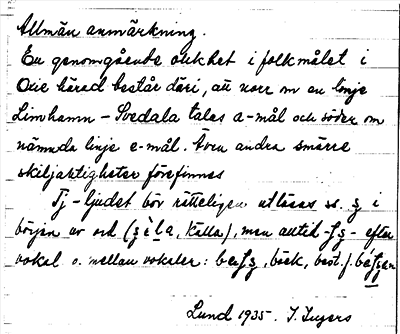 Allmän anmärkning.
En genomgående olikhet i folkmålet i
Oxie härad består däri, att norr om en linje
Limhamn – Svedala talas a-mål och söder om
nämnda linje e-mål. Även andra smärre
skiljaktigheter förefinnas
Tj-ljudet bör rätteligen utläsas ss. ʂ i
början av ord (källa), men alltid – efter
vokal o. mellan vokaler: bäck, best. f.
Lund 1935. I. Ingers